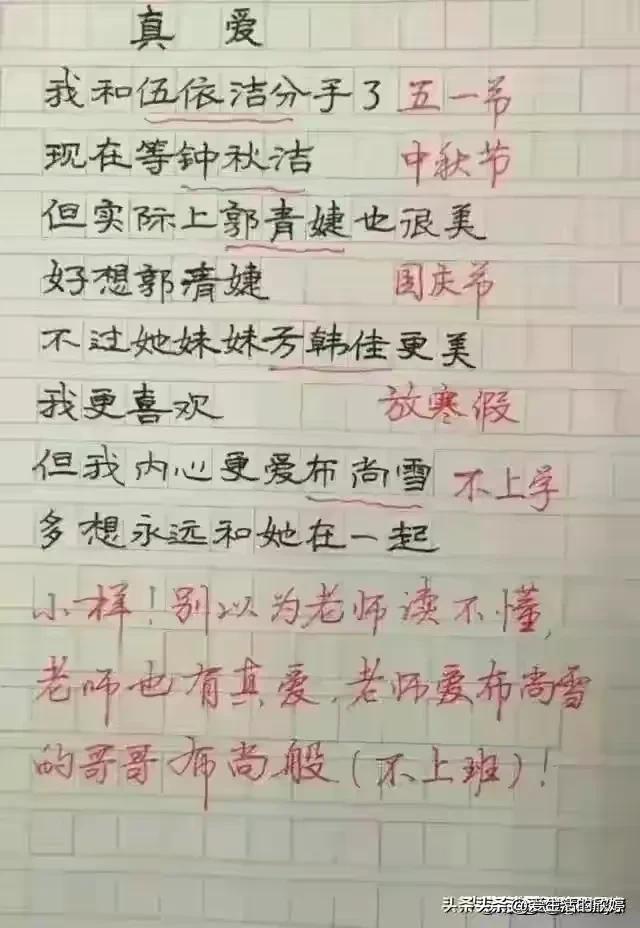 真 爱
我和伍依洁分手了 五一节
现在等钟秋洁 中秋节
但实际上郭青婕也很美
好想郭清婕 国庆节
不过她妹妹方韩佳更美
我更喜欢 放寒假
但我内心更爱布尚雪 不上学
多想永远和她在一起
小样！别以为老师读不懂，
老师也有真爱，老师爱布尚雪
的哥哥布尚般（不上班）！
头条@爱生活的欣婷